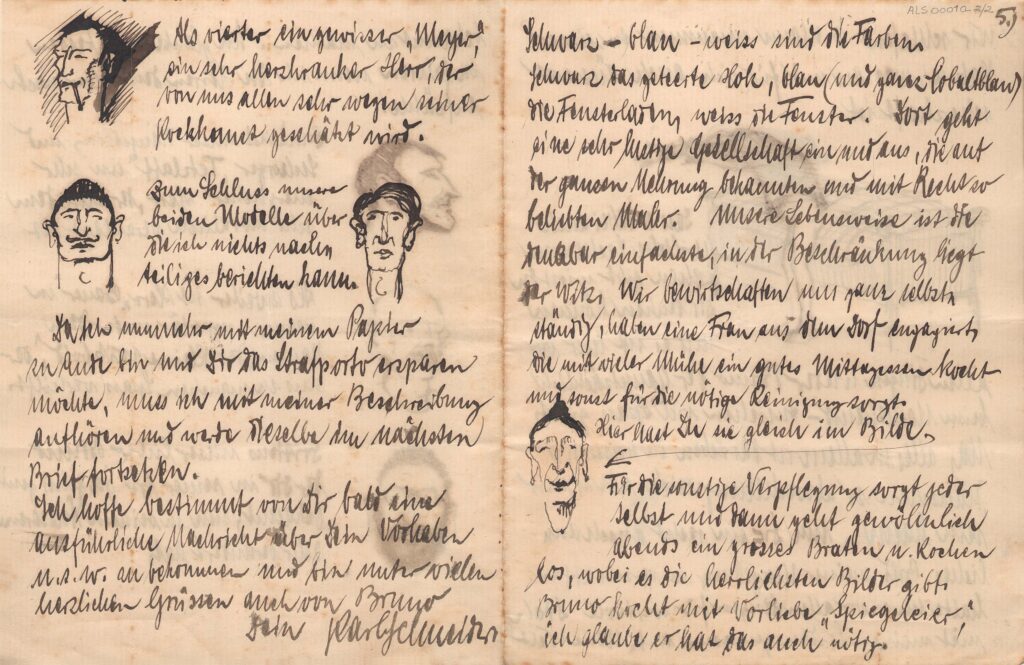 Als vierter ein gewisser „Meyer",
ein sehr herzkranker Herr, der
von uns allen sehr wegen seiner
Kochkunst geschätzt wird.
Zum Schluss unsere
beiden Modelle über
die ich nichts nach-
teiliges berichten kann.
Da ich nunmehr mit meinem Papier
zu Ende bin und Dir das Strafporto ersparen
möchte, muss ich mit meiner Beschreibung
aufhören und werde dieselbe im nächsten
Brief fortsetzen.
Ich hoffe bestimmt von Dir bald eine
ausführliche Nachricht über Dein Vorhaben
u.s.w. zu bekommen und bin unter vielen
herzlichen Grüssen auch von Bruno
Dein Karl Schneiders
ALS00010-2/2
5.)
Schwarz – blau – weiss sind die Farben,
schwarz das geteerte Holz, blau (und ganz Cobaltblau)
die Fensterläden, weiss die Fenster. Dort geht
eine sehr lustige Gesellschaft ein und aus, die auf
der ganzen Nehrung bekannten und mit Recht so
beliebten Maler. Unsere Lebensweise ist die
denkbar einfachste, in der Beschränkung liegt
der Witz. Wir bewirtschaften uns ganz selbst-
ständig, haben eine Frau aus dem Dorf engagiert,
die mit vieler Mühe ein gutes Mittagessen kocht
und sonst für die nötige Reinigung sorgt.
Hier hast Du sie gleich im Bilde.
Für die sonstige Verpflegung sorgt jeder
selbst und dann geht gewöhnlich
abends ein grosses Braten u. Kochen
los, wobei es die herrlichsten Bilder gibt.
Bruno kocht mit Vorliebe „Spiegeleier",
ich glaube er hat das auch nötig.